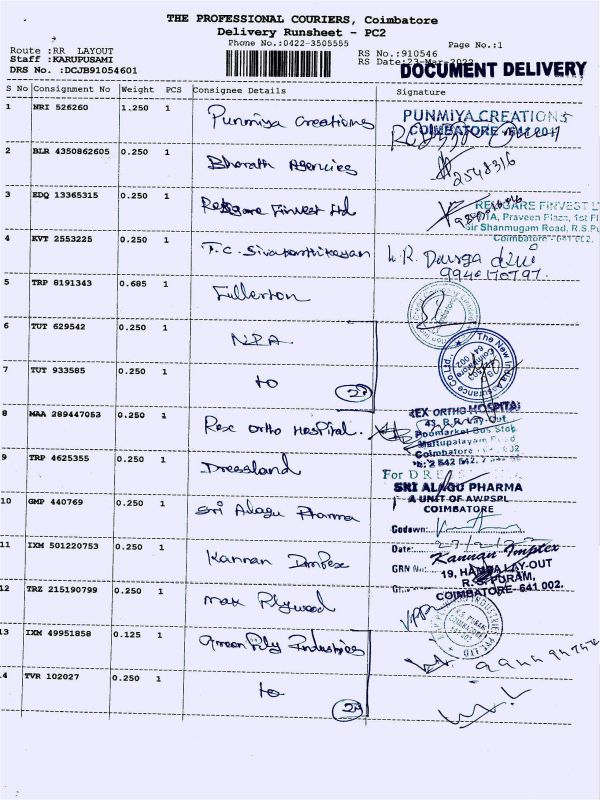 THE PROFESSIONAL COURIERS, Coimbatore
Delivery Runsheet - PC2
Phone No.:0422-3505555
Page No.:1
Route :RR LAYOUT
RS No.:910546
Staff :KARUPUSAMI
RS Date:23-Mar-2022
DRS No. :DCJB91054601
DOCUMENT DELIVERY
S No Consignment No Weight PCS Consignee Details Signature
1 NRI 526260 1.250 1 Punmiya Creations
PUNMIYA CREATIONS
COIMBATORE
2 BLR 4350862605 0.250 1 Bharath Agencies
2548316
3 EDQ 13365315 0.250 1 Finvest Ltd
RELIGARE FINVEST
Praveen Plaza, 1st Fl
Sir Shanmugam Road, R.S.Pu
Coimbatore - 641 002.
4 KVT 2553225 0.250 1 T.C.
Durga
9940170797
5 TRP 8191343 0.685 1 Fullerton
6 TUT 629542 0.250 1 NPA
The New India Assurance Co. Ltd.
7 TUT 933585 0.250 1 to
8 MAA 289447053 0.250 1 Rex Ortho Hospital.
REX ORTHO HOSPITAL
43, R.R. Lay-Out
Poomarket Bus Stop
Mettupalayam Road
Coimbatore
9 TRP 4625355 0.250 1 Dressland
For
10 GMP 440769 0.250 1 Sri Alagu Pharma
SRI ALAGU PHARMA
A UNIT OF AWPSPL
COIMBATORE
Godown:
Date:
GRN No:
11 IXM 501220753 0.250 1 Kannan Impex
Kannan Imptex
LAY-OUT
R.S. PURAM,
COIMBATORE- 641 002.
12 TRZ 215190799 0.250 1 max Plywood
13 IXM 49951858 0.125 1 Industries
4 TVR 102027 0.250 1 to